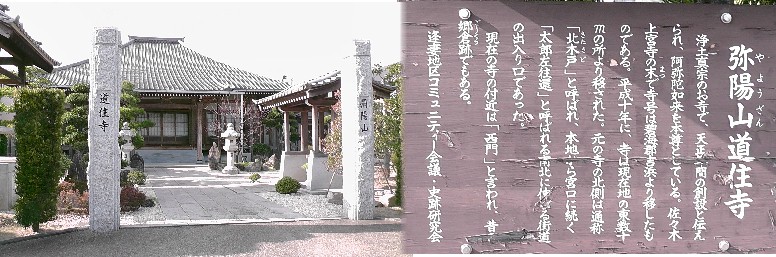 道住寺
弥陽山
弥陽山道住寺
やようざん
浄土真宗のお寺で、天正年間の創設と伝え
られ、阿弥陀如来を本尊としている。佐々木
上宮寺の末寺で寺号は碧海郡吉浜より移したも
まつ
のである。平成十年に、寺は現在地の東数十
mの所より移された。元の寺の北側は通称
「北木戸」と呼ばれ、本地から宮口に続く
きたきど
「太郎左往還」と呼ばれる南北に抜ける街道
の出入り口であった。
現在の寺の付近は「西門」と言われ、昔
郷倉跡でもある。
逢妻地区コミュニティー会議 史跡研究会